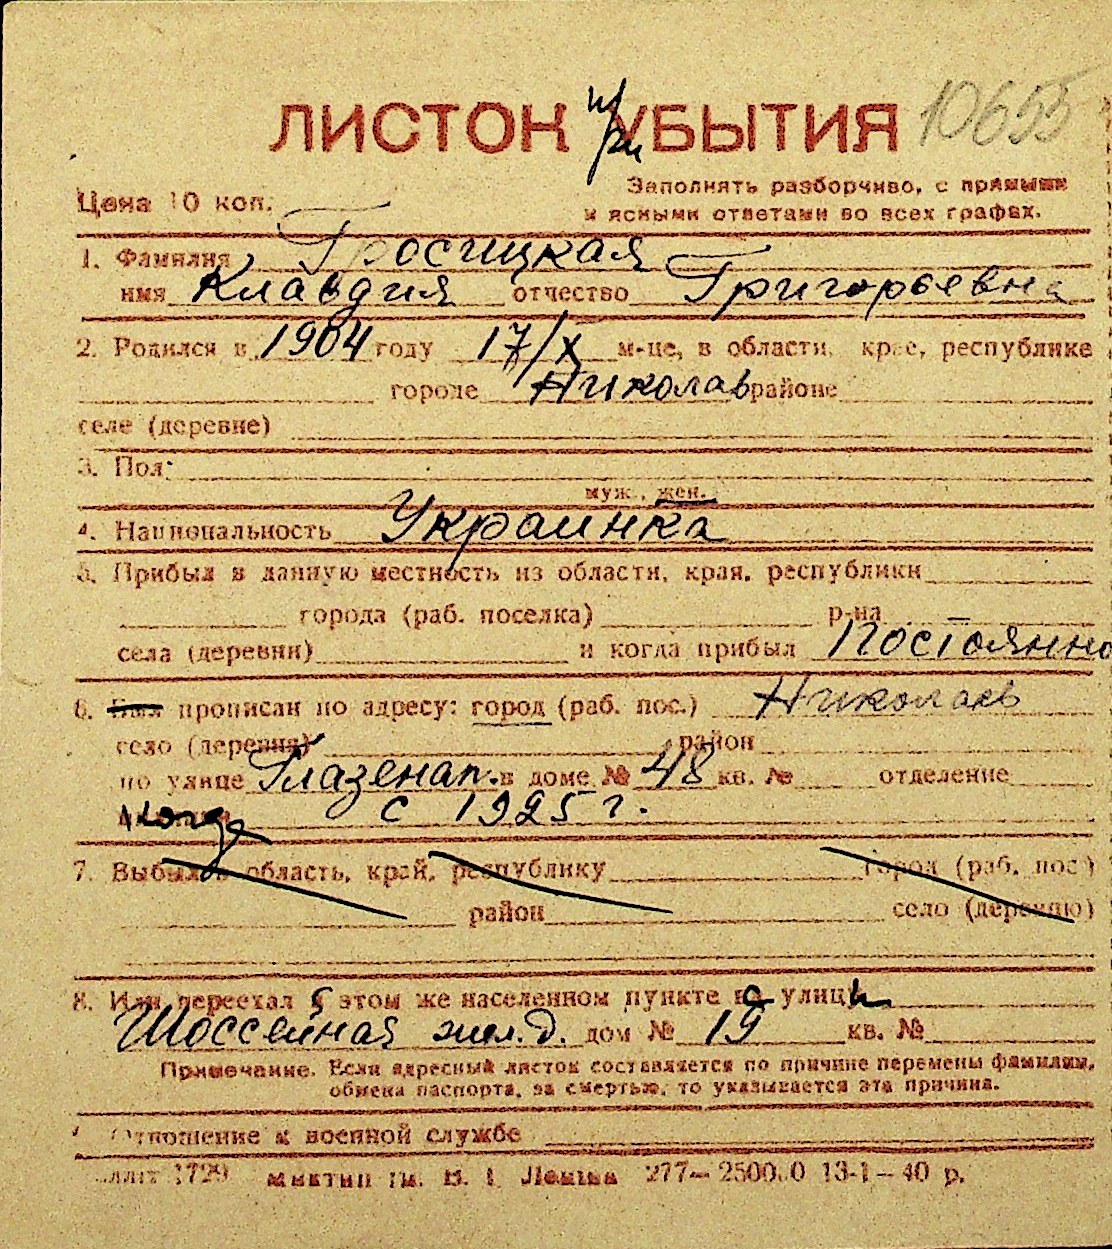 ЛИСТОК УБЫТИЯ
при
10655
Цена 10 коп.
Заполнять разборчиво, с прямыми
и ясными ответами во всех графах.
1. Фамилия Гросицкая
имя Клавдия отчество Григорьевна
2. Родился в 1904 году 17/X м-це, в области, крае, республике
городе Николаев районе
селе (деревне)
3. Пол:
муж., жен.
4. Национальность Украинка
5. Прибыл в данную местность из области, края, республики
города (раб. поселка) р-на
села (деревни) и когда прибыл Постоянно
6. Был прописан по адресу: город (раб. пос.) Николаев
село (деревня) район
по улице Глазенап. в доме № 48 кв. № отделение
с 1925 г.
7. Выбыл в область, край, республику город (раб. пос.)
район село (деревню)
8. Или переехал в этом же населенном пункте с улицы
Шоссейная жил. д. дом № 19 кв. №
Примечание. Если адресный листок составляется по причине перемены фамилии,
обмена паспорта, за смертью, то указывается эта причина.
Отношение к военной службе
1729 им. В. И. Ленина 277— 13-1—40 р.